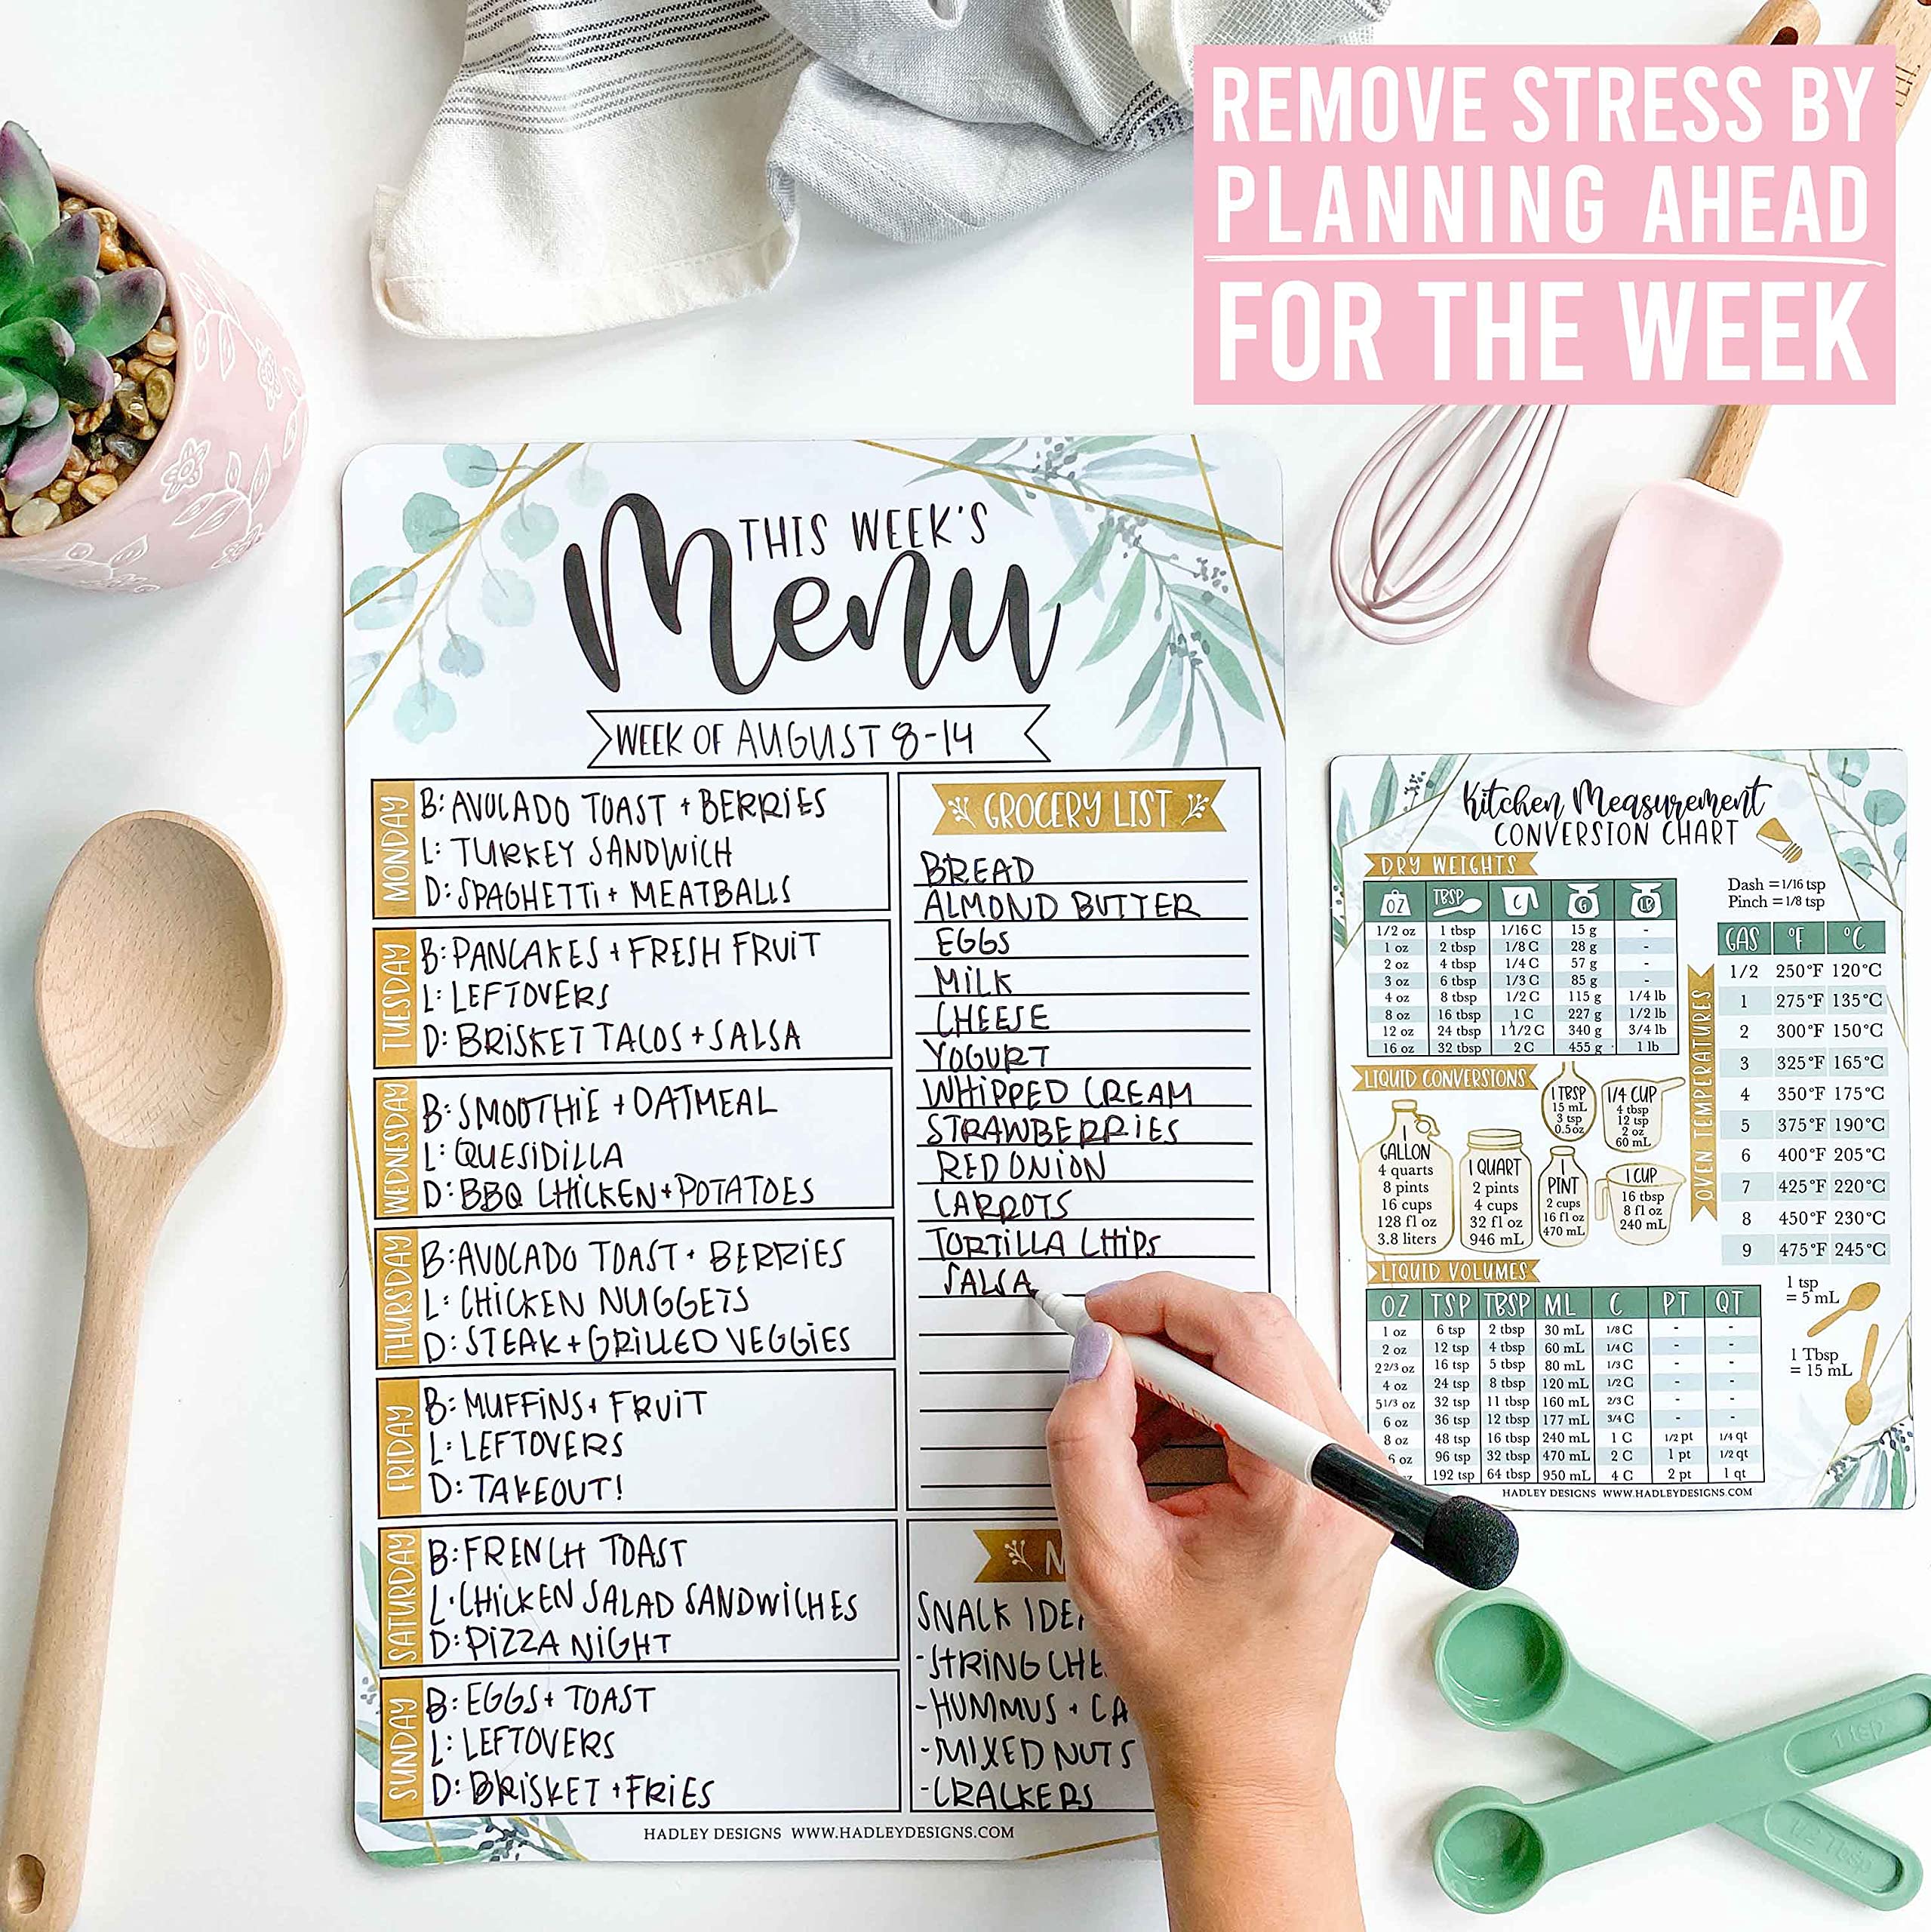 REMOVE STRESS BY
PLANNING AHEAD
FOR THE WEEK
THIS WEEK'S
Menu
WEEK OF AUGUST 8-14
MONDAY
B: AVOCADO TOAST + BERRIES
L: TURKEY SANDWICH
D: SPAGHETTI + MEATBALLS
TUESDAY
B: PANCAKES + FRESH FRUIT
L: LEFTOVERS
D: BRISKET TACOS + SALSA
WEDNESDAY
B: SMOOTHIE + OATMEAL
L: QUESIDILLA
D: BBQ CHICKEN + POTATOES
THURSDAY
B: AVOCADO TOAST + BERRIES
L: CHICKEN NUGGETS
D: STEAK + GRILLED VEGGIES
FRIDAY
B: MUFFINS + FRUIT
L: LEFTOVERS
D: TAKEOUT!
SATURDAY
B: FRENCH TOAST
L: CHICKEN SALAD SANDWICHES
D: PIZZA NIGHT
SUNDAY
B: EGGS + TOAST
L: LEFTOVERS
D: BRISKET + FRIES
GROCERY LIST
BREAD
ALMOND BUTTER
EGGS
MILK
CHEESE
YOGURT
WHIPPED CREAM
STRAWBERRIES
RED ONION
CARROTS
TORTILLA CHIPS
SALSA
SNACK
-STRING
-HUMMUS +
-MIXED NUTS
-CRACKERS
HADLEY DESIGNS WWW.HADLEYDESIGNS.COM
Kitchen Measurement
CONVERSION CHART
DRY WEIGHTS
OZ TBSP C G LB
1/2 oz 1 tbsp 1/16 C 15 g -
1 oz 2 tbsp 1/8 C 28 g -
2 oz 4 tbsp 1/4 C 57 g -
3 oz 6 tbsp 1/3 C 85 g -
4 oz 8 tbsp 1/2 C 115 g 1/4 lb
8 oz 16 tbsp 1 C 227 g 1/2 lb
12 oz 24 tbsp 1 1/2 C 340 g 3/4 lb
16 oz 32 tbsp 2 C 455 g 1 lb
Dash = 1/16 tsp
Pinch = 1/8 tsp
OVEN TEMPERATURES
GAS °F °C
1/2 250°F 120°C
1 275°F 135°C
2 300°F 150°C
3 325°F 165°C
4 350°F 175°C
5 375°F 190°C
6 400°F 205°C
7 425°F 220°C
8 450°F 230°C
9 475°F 245°C
LIQUID CONVERSIONS
1 TBSP
15 mL
3 tsp
0.5 oz
1/4 CUP
4 tbsp
12 tsp
2 oz
60 mL
1
GALLON
4 quarts
8 pints
16 cups
128 fl oz
3.8 liters
1 QUART
2 pints
4 cups
32 fl oz
946 mL
1
PINT
2 cups
16 fl oz
470 mL
1 CUP
16 tbsp
8 fl oz
240 mL
LIQUID VOLUMES
OZ TSP TBSP ML C PT QT
1 oz 6 tsp 2 tbsp 30 mL 1/8 C - -
2 oz 12 tsp 4 tbsp 60 mL 1/4 C - -
2 2/3 oz 16 tsp 5 tbsp 80 mL 1/3 C - -
4 oz 24 tsp 8 tbsp 120 mL 1/2 C - -
5 1/3 oz 32 tsp 11 tbsp 160 mL 2/3 C - -
6 oz 36 tsp 12 tbsp 177 mL 3/4 C - -
8 oz 48 tsp 16 tbsp 240 mL 1 C 1/2 pt 1/4 qt
6 oz 96 tsp 32 tbsp 470 mL 2 C 1 pt 1/2 qt
192 tsp 64 tbsp 950 mL 4 C 2 pt 1 qt
1 tsp
= 5 mL
1 Tbsp
= 15 mL
HADLEY DESIGNS WWW.HADLEYDESIGNS.COM
1 tsp
1/2 Tbsp